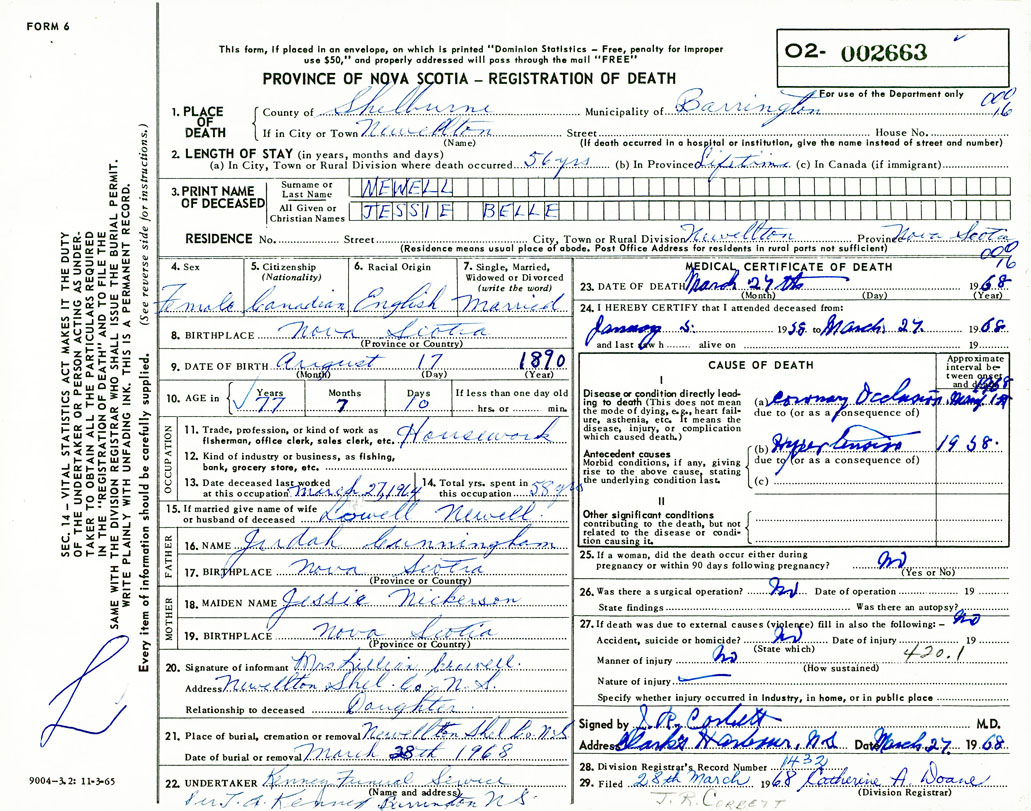 FORM 6
This form, if placed in an envelope, on which is printed "Dominion Statistics – Free, penalty for improper
use $50," and properly addressed will pass through the mail "FREE"
PROVINCE OF NOVA SCOTIA – REGISTRATION OF DEATH
O2- 002663
For use of the Department only
1. PLACE OF DEATH
County of Shelburne Municipality of Barrington
If in City or Town Newellton Street House No.
(Name) (If death occurred in a hospital or institution, give the name instead of street and number)
2. LENGTH OF STAY (in years, months and days)
(a) In City, Town or Rural Division where death occurred 56 yrs (b) In Province Lifetime (c) In Canada (if immigrant)
3. PRINT NAME OF DECEASED
Surname or Last Name NEWELL
All Given or Christian Names JESSIE BELLE
RESIDENCE No. Street City, Town or Rural Division Newellton Province Nova Scotia
(Residence means usual place of abode. Post Office Address for residents in rural parts not sufficient)
4. Sex 5. Citizenship (Nationality) 6. Racial Origin 7. Single, Married, Widowed or Divorced (write the word)
Female Canadian English Married
8. BIRTHPLACE Nova Scotia
(Province or Country)
9. DATE OF BIRTH August 17 1890
(Month) (Day) (Year)
10. AGE in Years Months Days If less than one day old
77 7 10 hrs. or min.
OCCUPATION
11. Trade, profession, or kind of work as
fisherman, office clerk, sales clerk, etc. Housework
12. Kind of industry or business, as fishing,
bank, grocery store, etc.
13. Date deceased last worked
at this occupation March 27, 1964
14. Total yrs. spent in
this occupation 58 yrs
15. If married give name of wife
or husband of deceased Lowell Newell
FATHER
16. NAME Judah Cunningham
17. BIRTHPLACE Nova Scotia
(Province or Country)
MOTHER
18. MAIDEN NAME Jessie Nickerson
19. BIRTHPLACE Nova Scotia
(Province or Country)
20. Signature of informant Mrs Lillian
Address Newellton Shel. Co. N.S.
Relationship to deceased Daughter
21. Place of burial, cremation or removal Newellton Shel Co. N.S
Date of burial or removal March 28th 1968
22. UNDERTAKER Kenney Funeral Service
(Name and address)
Kenney Barrington N.S.
MEDICAL CERTIFICATE OF DEATH
23. DATE OF DEATH March 27th 1968
(Month) (Day) (Year)
24. I HEREBY CERTIFY that I attended deceased from:
January 5: 1958 to March, 27. 1968
and last saw h alive on 19
CAUSE OF DEATH
Approximate interval between onset and death
I
Disease or condition directly leading to death (This does not mean
the mode of dying, e.g., heart failure, asthenia, etc. It means the
disease, injury, or complication
which caused death.)
(a) Coronary Occlusion
due to (or as a consequence of)
Antecedent causes
Morbid conditions, if any, giving
rise to the above cause, stating
the underlying condition last.
(b) Hypertension 1958.
due to (or as a consequence of)
(c)
II
Other significant conditions
contributing to the death, but not
related to the disease or condition causing it.
25. If a woman, did the death occur either during
pregnancy or within 90 days following pregnancy? No
(Yes or No)
26. Was there a surgical operation? No Date of operation 19
State findings Was there an autopsy? No
27. If death was due to external causes (violence) fill in also the following: –
Accident, suicide or homicide? No Date of injury 19
(State which) 420.1
Manner of injury No
(How sustained)
Nature of injury
Specify whether injury occurred in industry, in home, or in public place
Signed by J. R. Corbett M.D.
Address Clark's Harbour, N.S Date March 27. 1968
28. Division Registrar's Record Number 1432
29. Filed 28th March 1968 Catherine A. Doane
(Division Registrar)
J. R. CORBETT
SEC. 14 – VITAL STATISTICS ACT MAKES IT THE DUTY
OF THE UNDERTAKER OR PERSON ACTING AS UNDER-
TAKER TO OBTAIN ALL THE PARTICULARS REQUIRED
IN THE "REGISTRATION OF DEATH" AND TO FILE THE
SAME WITH THE DIVISION REGISTRAR WHO SHALL ISSUE THE BURIAL PERMIT.
WRITE PLAINLY WITH UNFADING INK. THIS IS A PERMANENT RECORD.
Every item of information should be carefully supplied. (See reverse side for instructions.)
9004-3.2: 11-3-65